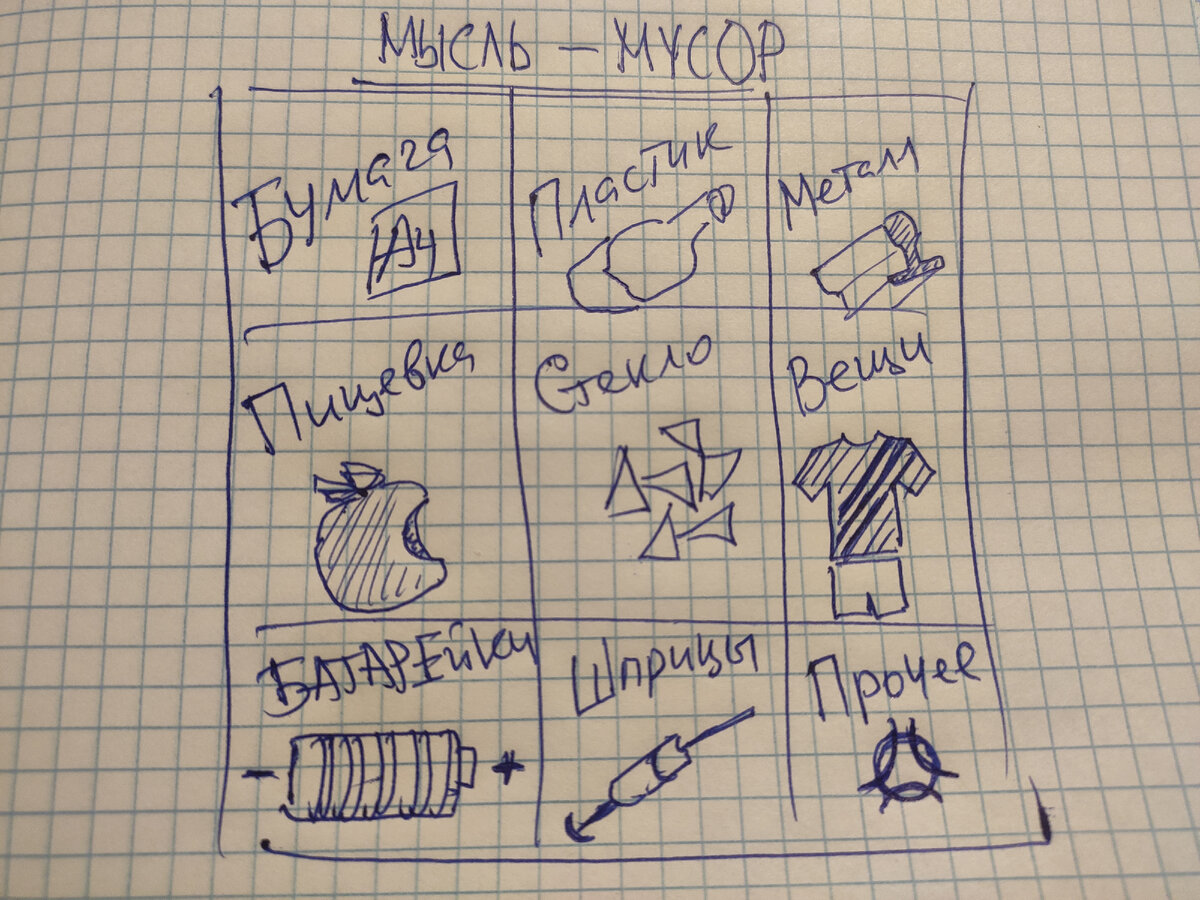 МЫСЛЬ – МУСОР
Бумага
А4
Пластик
Металл
Пищевка
Стекло
Вещи
БАТАРЕЙКИ
Шприцы
Прочее
- +